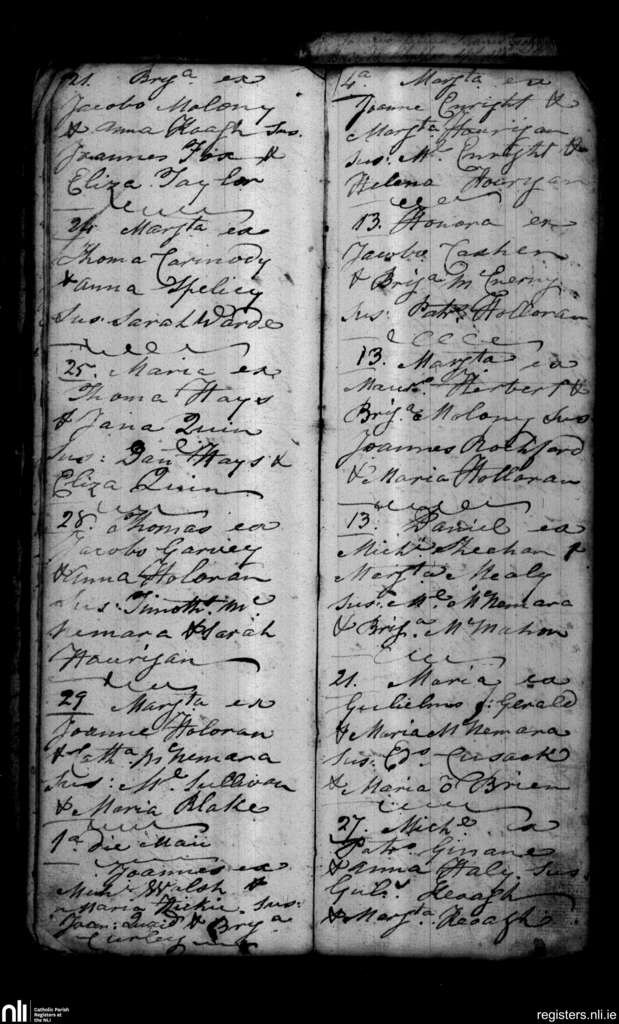 21. Bryᵃ ex
Jacobo Molony
& Anna Keagh Sus:
Joannes Fox &
Eliza Taylor
24 Margta ex
Thoma Carmody
& Anna Spelicy
Sus: Sarah Warde
25. Maria ex
Thoma Hays
& Jana Quin
Sus: Danl Hays &
Eliza Quin
28. Thomas ex
Jacobo Garvey
& Anna Holoran
Sus: Timoth. Mc
nemara & Sarah
Hourigan
29 Margta ex
Joanne Holoran
& Catha. McNemara
Sus: Ml. Sullivan
& Maria Blake
1ª die Maii
Joannes ex
Michl Walsh &
Maria Hickie. Sus:
Joan: Quaid & Bryᵃ
Curley
4ª Margta ex
Joanne Enright &
Margta Hourigan
Sus: Ml Enright &
Helena Hourigan
13. Honora ex
Jacobo Casher
& Brigᵃ McEnery
Sus: Patk Holloran
13. Margta ex
Maurs. Herbert &
Brigᵃ Molony Sus
Joannes Rochford
& Maria Holloran
13. Daniel ex
Michl Sheehan &
Margta Mealy
Sus: Ml McNemara
& Brigᵃ. McMahon
21. Maria ex
Gulielmo f: Gerald
& Maria McNemara
Sus: Eds. Cusack
& Maria O Brien
27. Michl ex
Patro Ginane
& Anna Haly Sus
Gull Keoagh
& Margta. Keoagh
nli
Catholic Parish
Registers at
the NLI
registers.nli.ie